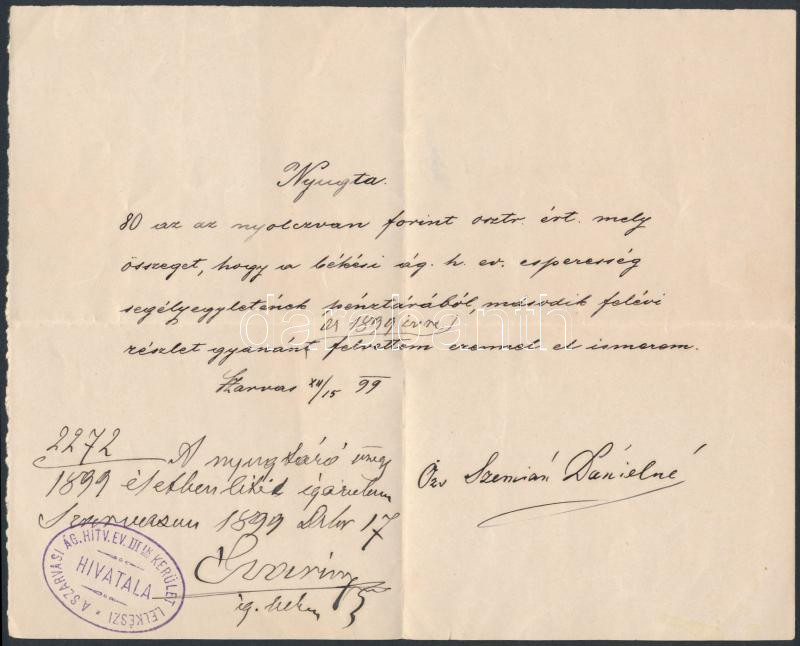 Nyugta.
80 az az nyolczvan forint osztr. ért. mely
összeget, hogy a békési ág. h. ev. esperesség
segélyegyletének pénztárából, második felévi
(az 1899 évre)
részlet gyanánt felvettem ezennel el ismerem.
Szarvas XII/15 99
2272
A nyugtázó özvegy
1899 életben létét igazolom
Szarvason 1899 Dcbr 17
ig. lelkész
Özv Szemián Dánielné
A SZARVASI ÁG. HITV. EV. III IK KERÜLET LELKÉSZI
HIVATALA
darabanth